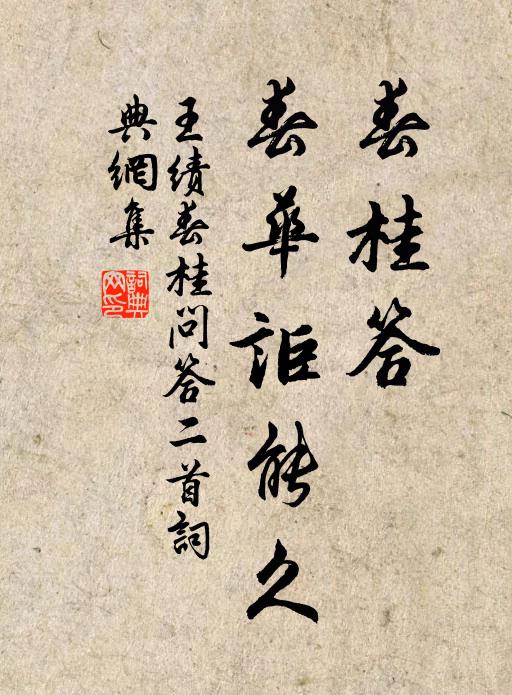 春桂答
春華詎能久
王績春桂問答二首詞
典網集
詞典網印